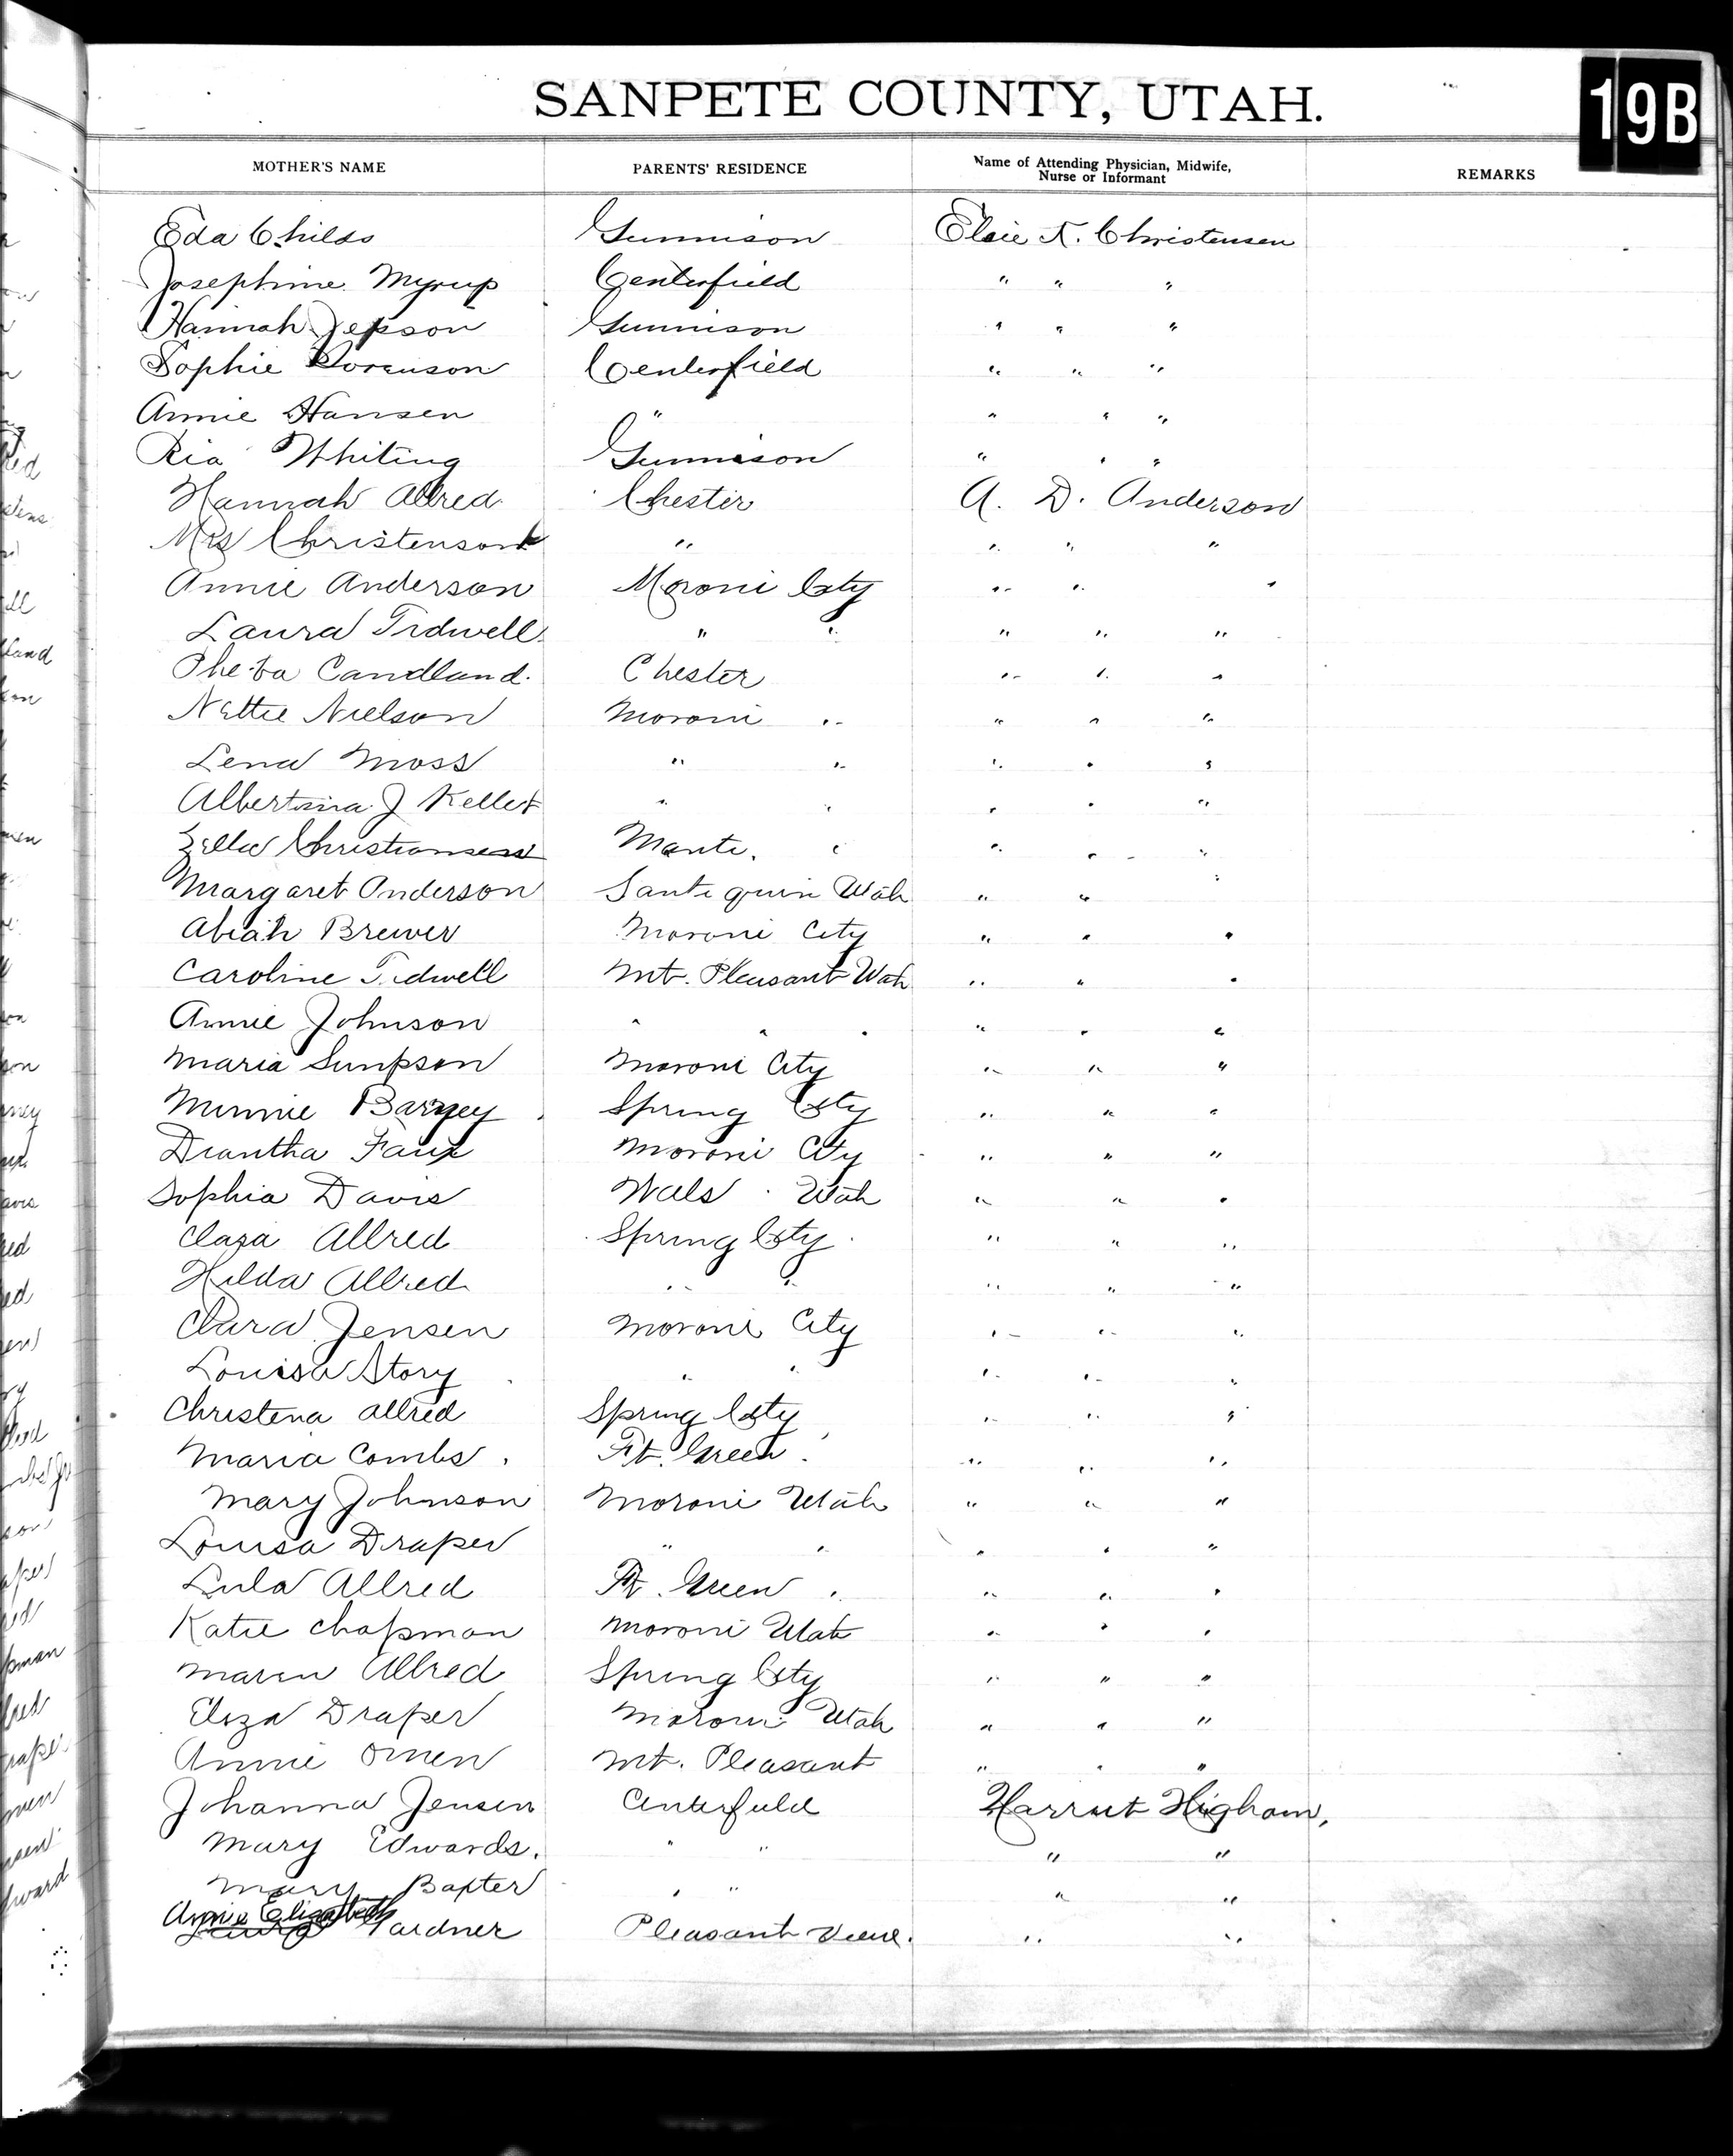 SANPETE COUNTY, UTAH.
19B
MOTHER'S NAME PARENTS' RESIDENCE Name of Attending Physician, Midwife, Nurse or Informant REMARKS
Eda Childs Gunnison Elsie K. Christensen
Josephine Myrup Centerfield " " "
Hannah Jepson Gunnison " " "
Sophie Sorenson Centerfield " " "
Annie Hansen " " " "
Ria Whiting Gunnison " " "
Hannah Allred Chester A. D. Anderson
Mrs Christenson " " " "
Annie Anderson Moroni City " " "
Laura Tidwell " " " " "
Pheba Candland Chester " " "
Nettie Nielson Moroni " " " "
Lena Moss " " " " "
Albertina J Keller " " " " "
Zilla Christiansen Manti " " " "
Margaret Anderson Santiquin Utah " " "
Abiah Brewer Moroni City " " "
Caroline Tidwell Mt. Pleasant Utah " " "
Annie Johnson " " " " " "
Maria Simpson Moroni City " " "
Minnie Barney Spring City " " "
Diantha Faux Moroni City " " "
Sophia Davis Wals Utah " " "
Clara Allred Spring City " " "
Hilda Allred " " " " "
Clara Jensen Moroni City " " "
Louisa Story " " " " "
Christena Allred Spring City " " "
Maria Combs Ft. Green " " "
Mary Johnson Moroni Utah " " "
Louisa Draper " " " " "
Lula Allred Ft. Green " " "
Katie Chapman Moroni Utah " " "
Maren Allred Spring City " " "
Eliza Draper Moroni Utah " " "
Annie Omen Mt. Pleasant " " "
Johanna Jensen Centerfield Harriet Higham,
Mary Edwards. " " " "
Mary Baxter " " " "
Annie Elizabeth
Gardner Pleasant View. " "